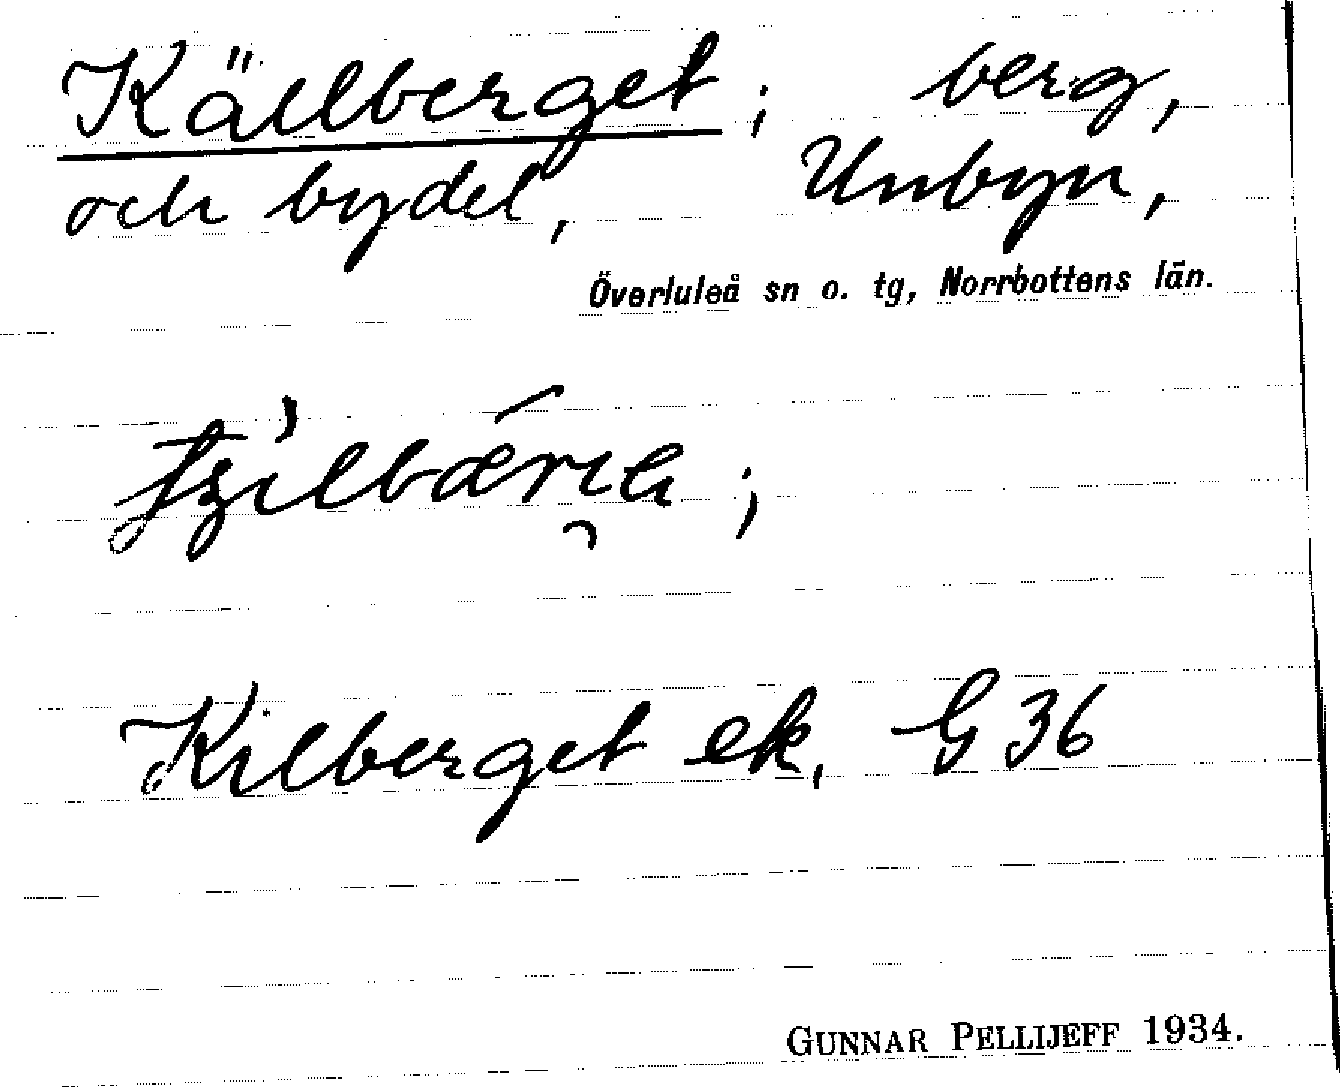 Källberget; berg,
och bydel, Unbyn,
Överluleå sn o. tg, Norrbottens län.
Kilberget ek, G 36
GUNNAR PELLIJEFF 1934.